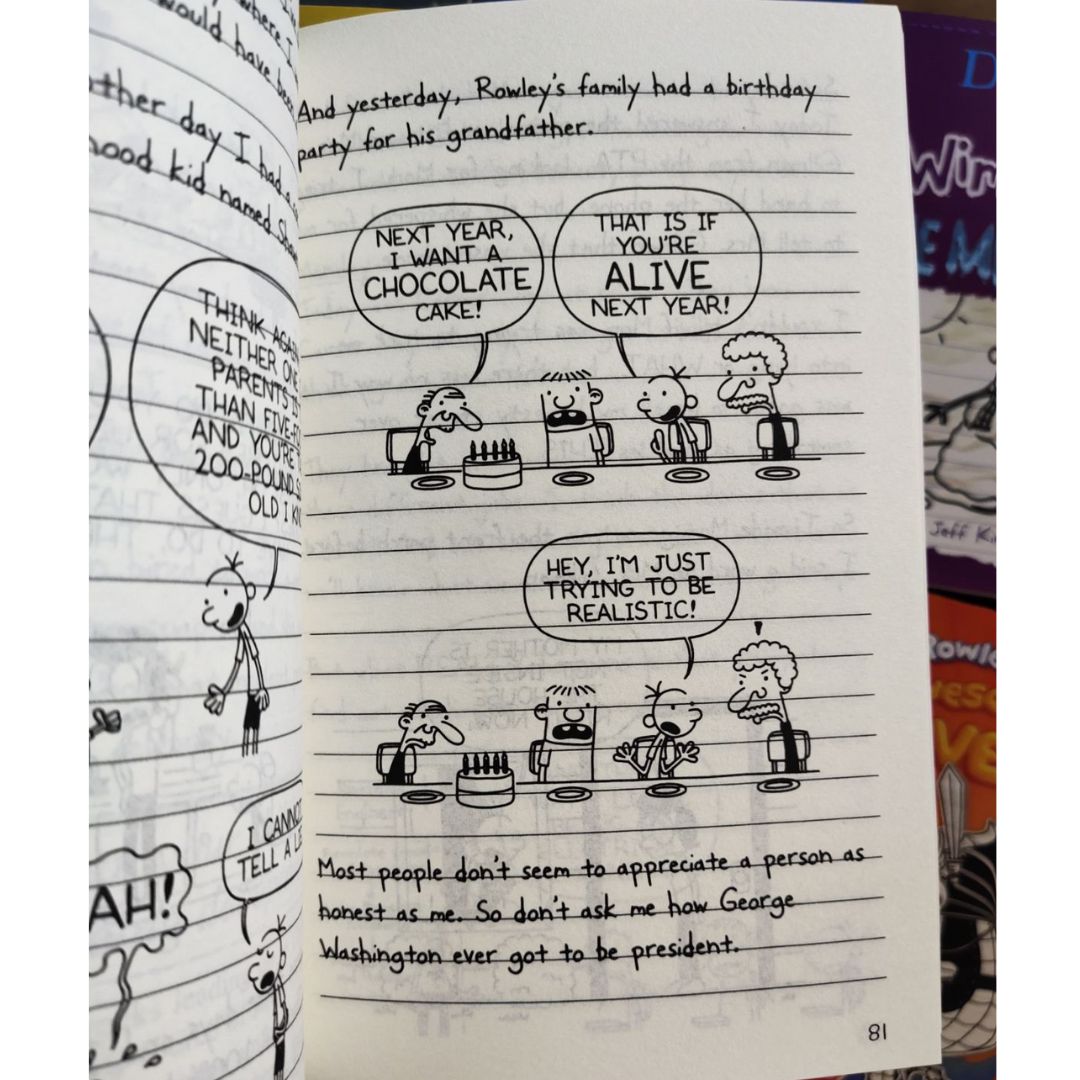 where I
would have been
other day I had a
hood kid named
THINK AGAIN
NEITHER ONE
PARENTS IS
THAN
AND YOU'RE
200-POUND
OLD I
I CANNOT
TELL A
AH!
And yesterday, Rowley's family had a birthday
party for his grandfather.
NEXT YEAR,
I WANT A
CHOCOLATE
CAKE!
THAT IS IF
YOU'RE
ALIVE
NEXT YEAR!
HEY, I'M JUST
TRYING TO BE
REALISTIC!
Most people don't seem to appreciate a person as
honest as me. So don't ask me how George
Washington ever got to be president.
81
D
Jeff